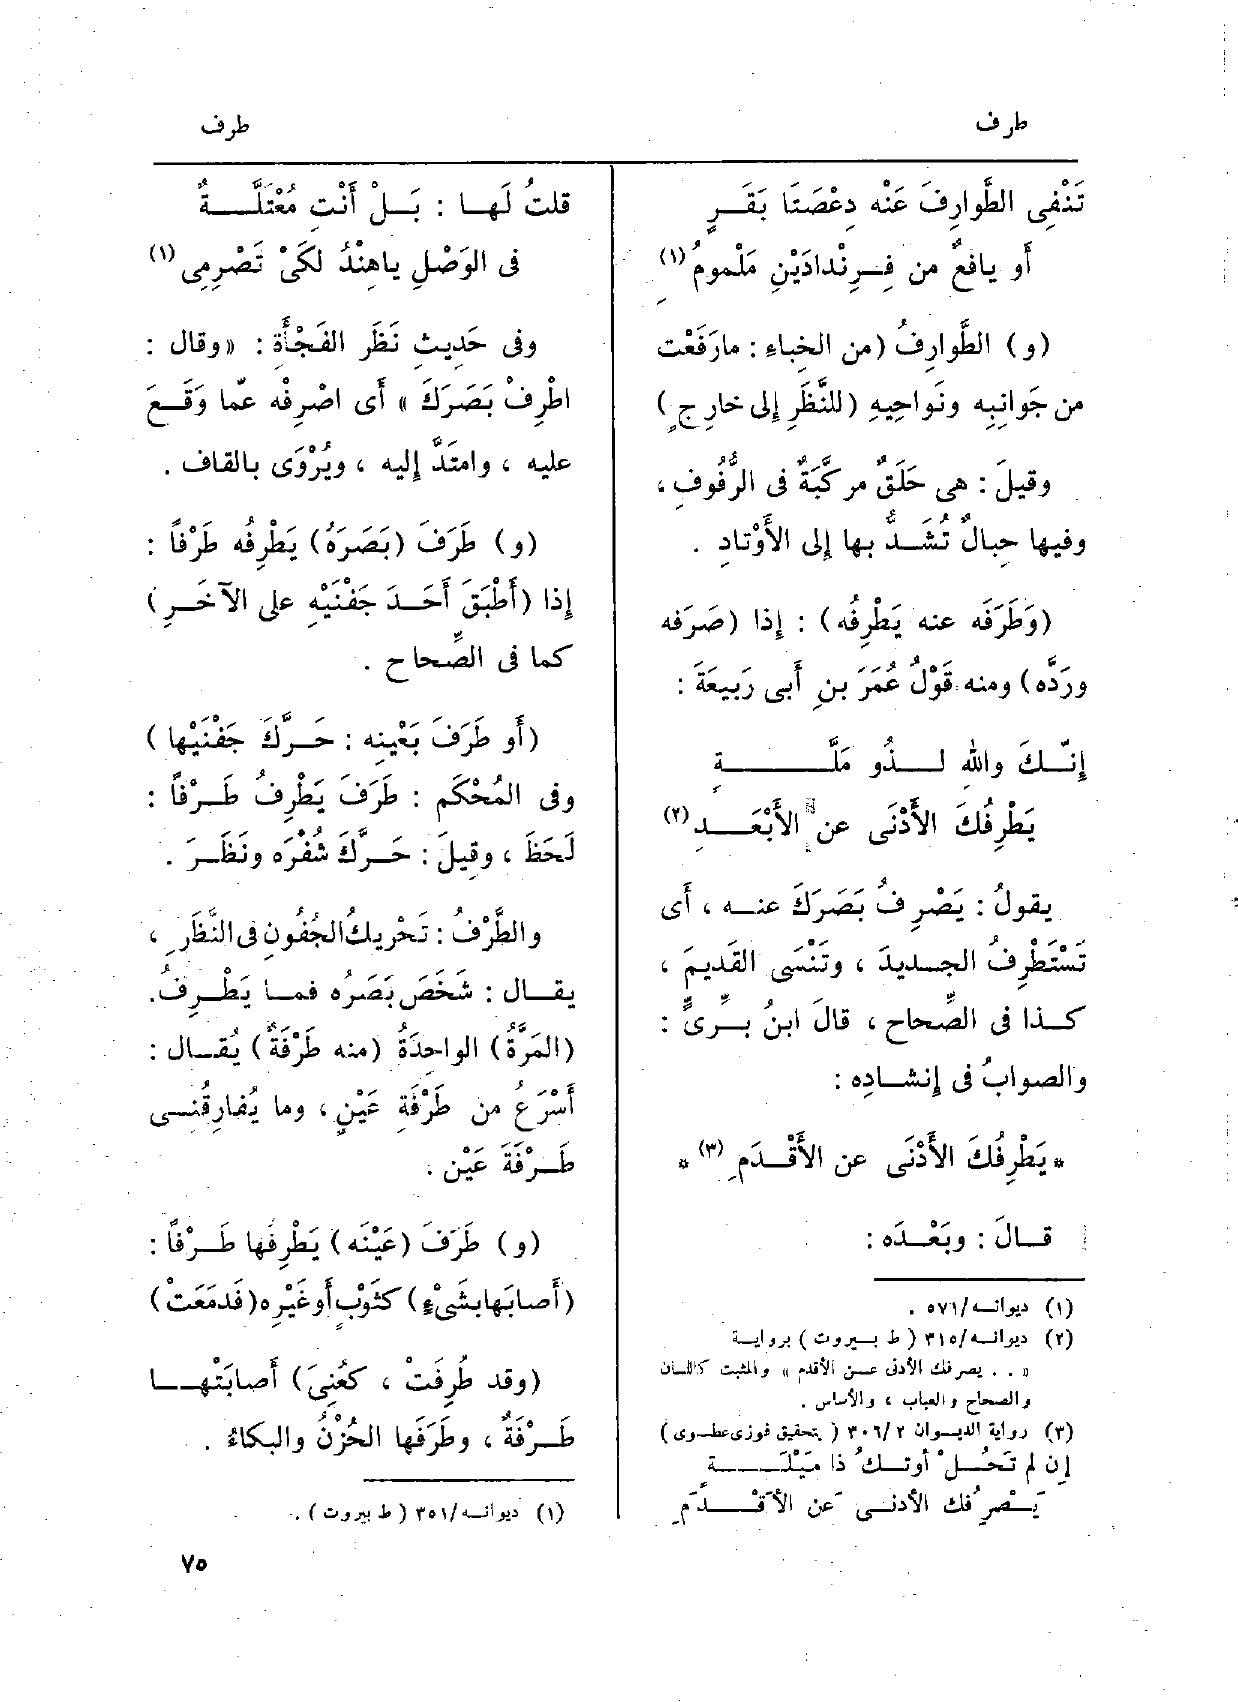 طرف
طرف
تَنْفِى الطَّوارِفَ عَنْه دِعْصَتَا بَقَـرٍ
أو يافعٌ من فِـرِنْدادَيْنِ مَلْمومُ (١)
(و) الطَّوارِفُ (من الخِباءِ : مارَفَعْت
من جَوانِبِه ونَواحِيهِ (للنَّظَرِ إلى خارِجٍ)
وقيلَ : هى حَلَقٌ مركَّبَةٌ فى الرُّفُوفِ ،
وفيها حِبالٌ تُشَـدُّ بها إلى الأَوْتادِ .
(وَطَرَفَه عنه يَطْرِفُه) : إذا (صَرَفه
ورَدَّه) ومنه قَوْلُ عُمَرَ بنِ أَبى رَبِيعَةَ :
إنّـكَ واللهِ لـذُو مَلَّـةٍ
يَطْرِفُكَ الأَدْنَى عن الأَبْعَـدِ (٢)
يقولُ : يَصْرِفُ بَصَرَكَ عنـه ، أَى
تَسْتَطْرِفُ الجـديدَ ، وتَنْسَى القَدِيمَ ،
كـذا فى الصِّحاحِ ، قالَ ابنُ بَـرِّىٍّ :
والصوابُ فى إنشـادِه :
* يَطْرِفُكَ الأَدْنَى عن الأَقْـدَمِ (٣) *
قـالَ : وبَعْـدَه :
(١) ديوانـه/٥٧١ .
(٢) ديوانـه/٣١٥ ( ط بـيروت ) برواية
« . . يصرفك الأدنى عـن الأقدم » والمثبت كاللسان
والصحاح والعباب ، والأساس .
(٣) رواية الديـوان ٣٠٦/٢ ( بتحقيق فوزى عطـوى )
إن لم تَحُـلْ أوتـكُ ذا مَيْلَـةٍ
يَـصْرِفُك الأدنـى عن الأَقْـدَمِ
قلتُ لَهـا : بَـلْ أَنْتِ مُعْتَلَّـةٌ
فى الوَصْلِ ياهِنْدُ لكَىْ تَصْرِمِى (١)
وفى حَدِيثِ نَظَرِ الفَجْأَة : « وقال :
اطْرِفْ بَصَرَكَ » أَى اصْرِفْه عمّا وَقَـعَ
عليه ، وامتَدَّ إليه ، ويُرْوَى بالقاف .
(و) طَرَفَ (بَصَرَهُ) يَطْرِفُه طَرْفاً :
إذا (أَطْبَقَ أَحَـدَ جَفْنَيْهِ على الآخَـرِ)
كما فى الصِّحاح .
(أو طَرَفَ بعَيْنِه : حَـرَّكَ جَفْنَيْها )
وفى المُحْكَم : طَرَفَ يَطْرِفُ طَـرْفاً :
لَحَظَ ، وقِيلَ : حَـرَّكَ شُفْرَه ونَظَـرَ .
والطَّرْفُ : تَحْرِيكُ الجُفُونِ فى النَّظَرِ ،
يقـال : شَخَصَ بَصَرُه فمـا يَطْـرِفُ.
(المَرَّةُ) الواحِدَةُ (منه طَرْفَةٌ) يُقـال :
أَسْرَعُ من طَرْفَةِ عَيْنٍ ، وما يُفارِقُنـى
طَـرْفَةَ عَيْن .
(و) طَرَفَ (عَيْنَه) يَطْرِفُها طَـرْفاً :
(أَصابَها بشَىْءٍ) كثَوْبٍ أو غَيْرِه (فَدمَعَتْ)
(وقد طُرِفَتْ ، كعُنِىَ) أَصابَتْهـا
طَـرْفَةٌ ، وطَرَفَها الحُزْنُ والبكاءُ .
(١) ديوانـه/٣٥١ ( ط بيروت ) .
٧٥